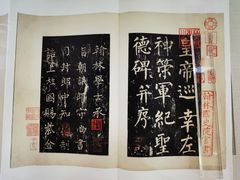 皇帝巡幸左
神策軍紀聖
德碑并序
翰林學士承
旨朝議郎守尚書
司封郎中知制
誥上柱國賜紫金